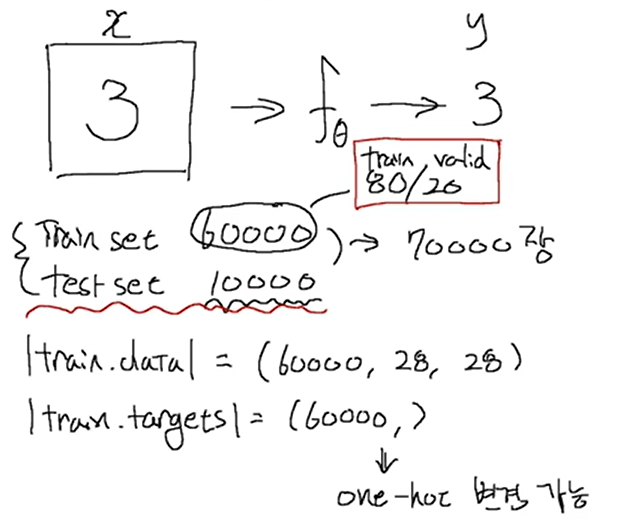 x y
3 → fθ → 3
train valid
80/20
Train set 60000 → 70000장
test set 10000
|train.data| = (60000, 28, 28)
|train.targets| = (60000, )
⇓
one-hot 변경 가능